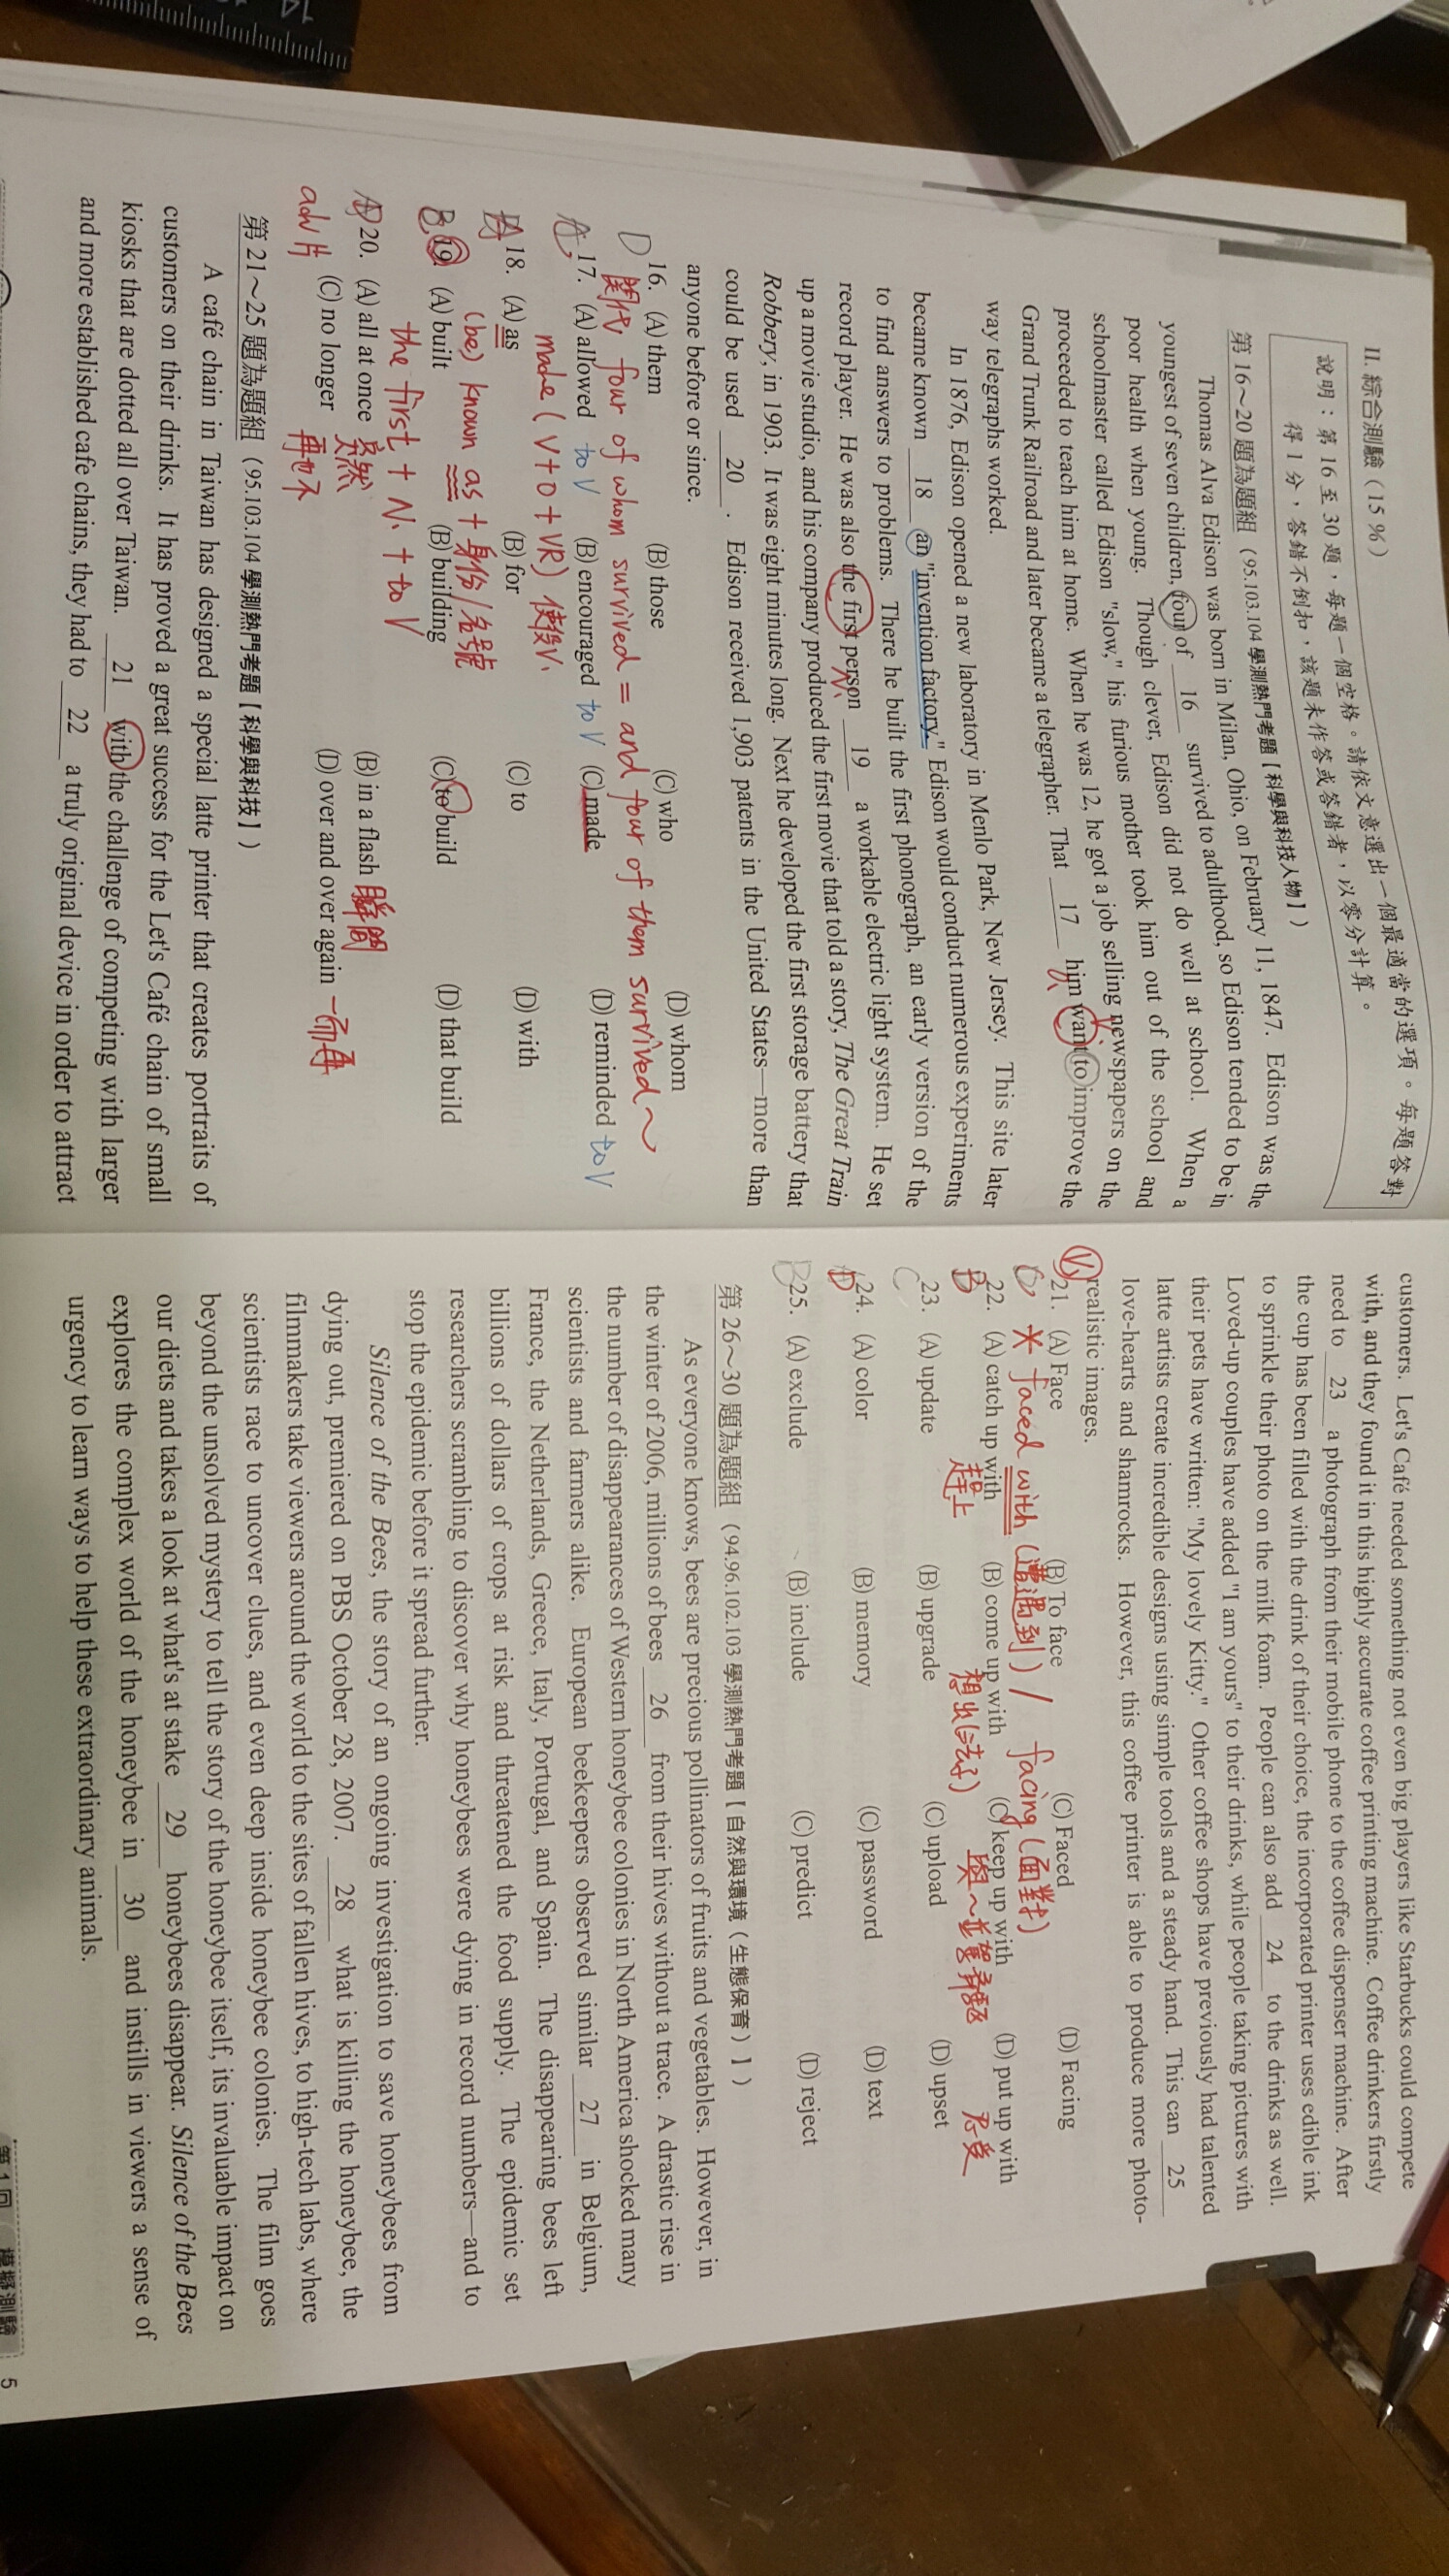 II. 綜合測驗（15 %）
說明：第 16 至 30 題，每題一個空格。請依文意選出一個最適當的選項。每題答對
得 1 分，答錯不倒扣，該題未作答或答錯者，以零分計算。
第 16～20 題為題組（95.103.104 學測熱門考題【科學與科技人物】）
Thomas Alva Edison was born in Milan, Ohio, on February 11, 1847. Edison was the
youngest of seven children, four of 16 survived to adulthood, so Edison tended to be in
poor health when young. Though clever, Edison did not do well at school. When a
schoolmaster called Edison "slow," his furious mother took him out of the school and
proceeded to teach him at home. When he was 12, he got a job selling newspapers on the
Grand Trunk Railroad and later became a telegrapher. That 17 him want to improve the
way telegraphs worked.
In 1876, Edison opened a new laboratory in Menlo Park, New Jersey. This site later
became known 18 an "invention factory." Edison would conduct numerous experiments
to find answers to problems. There he built the first phonograph, an early version of the
record player. He was also the first person 19 a workable electric light system. He set
up a movie studio, and his company produced the first movie that told a story, The Great Train
Robbery, in 1903. It was eight minutes long. Next he developed the first storage battery that
could be used 20 . Edison received 1,903 patents in the United States—more than
anyone before or since.
D 16. (A) them (B) those (C) who (D) whom
關代 four of whom survived = and four of them survived～
17. (A) allowed to V (B) encouraged to V (C) made (D) reminded to V
made (V+O+VR) 使役V.
18. (A) as (B) for (C) to (D) with
(be) known as + 身份/名號
19. (A) built (B) building (C) to build (D) that build
the first + N. + to V
20. (A) all at once 突然 (B) in a flash 瞬間
adv片 (C) no longer 再也不 (D) over and over again 一而再
第 21～25 題為題組（95.103.104 學測熱門考題【科學與科技】）
A café chain in Taiwan has designed a special latte printer that creates portraits of
customers on their drinks. It has proved a great success for the Let's Café chain of small
kiosks that are dotted all over Taiwan. 21 with the challenge of competing with larger
and more established cafe chains, they had to 22 a truly original device in order to attract
customers. Let's Café needed something not even big players like Starbucks could compete
with, and they found it in this highly accurate coffee printing machine. Coffee drinkers firstly
need to 23 a photograph from their mobile phone to the coffee dispenser machine. After
the cup has been filled with the drink of their choice, the incorporated printer uses edible ink
to sprinkle their photo on the milk foam. People can also add 24 to the drinks as well.
Loved-up couples have added "I am yours" to their drinks, while people taking pictures with
their pets have written: "My lovely Kitty." Other coffee shops have previously had talented
latte artists create incredible designs using simple tools and a steady hand. This can 25
love-hearts and shamrocks. However, this coffee printer is able to produce more photo-
realistic images.
21. (A) Face (B) To face (C) Faced (D) Facing
* faced with (遭遇到) / facing (面對)
B 22. (A) catch up with (B) come up with (C) keep up with (D) put up with
趕上 想出(法子) 與～並駕齊驅 忍受
C 23. (A) update (B) upgrade (C) upload (D) upset
D 24. (A) color (B) memory (C) password (D) text
B 25. (A) exclude (B) include (C) predict (D) reject
第 26～30 題為題組（94.96.102.103 學測熱門考題【自然與環境（生態保育）】）
As everyone knows, bees are precious pollinators of fruits and vegetables. However, in
the winter of 2006, millions of bees 26 from their hives without a trace. A drastic rise in
the number of disappearances of Western honeybee colonies in North America shocked many
scientists and farmers alike. European beekeepers observed similar 27 in Belgium,
France, the Netherlands, Greece, Italy, Portugal, and Spain. The disappearing bees left
billions of dollars of crops at risk and threatened the food supply. The epidemic set
researchers scrambling to discover why honeybees were dying in record numbers—and to
stop the epidemic before it spread further.
Silence of the Bees, the story of an ongoing investigation to save honeybees from
dying out, premiered on PBS October 28, 2007. 28 what is killing the honeybee, the
filmmakers take viewers around the world to the sites of fallen hives, to high-tech labs, where
scientists race to uncover clues, and even deep inside honeybee colonies. The film goes
beyond the unsolved mystery to tell the story of the honeybee itself, its invaluable impact on
our diets and takes a look at what's at stake 29 honeybees disappear. Silence of the Bees
explores the complex world of the honeybee in 30 and instills in viewers a sense of
urgency to learn ways to help these extraordinary animals.
1
第 1 回 模擬測驗 5